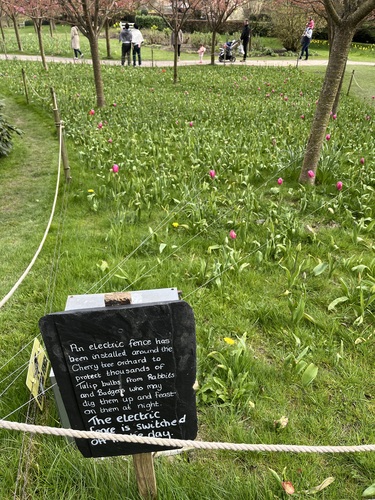 An electric fence has
been installed around the
Cherry tree orchard to
protect thousands of
Tulip bulbs from Rabbits
and Badgers who may
dig them up and feast
on them at night.
The electric
fence is switched
off day.